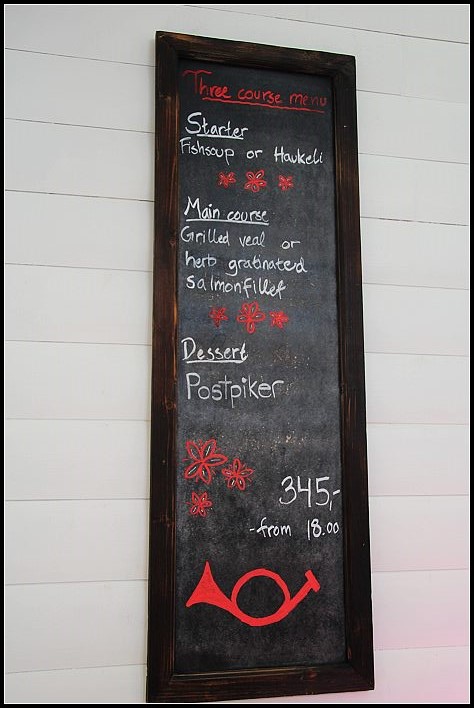 Three course menu
Starter
Fishsoup or Haukeli
Main course
Grilled veal or
herb gratinated
salmonfillet
Dessert
Postpiker
345,-
-from 18.00